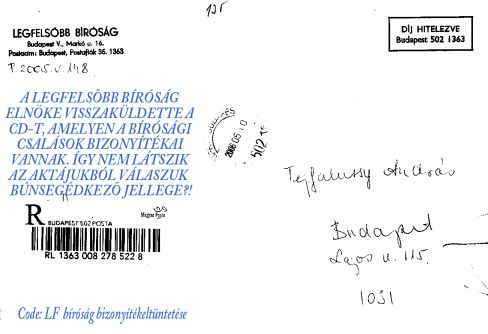 135
LEGFELSŐBB BÍRÓSÁG
Budapest V., Markó u. 16.
Postacím: Budapest, Postafiók 35. 1363
P.2005.V.148
DÍJ HITELEZVE
Budapest 502 1363
A LEGFELSŐBB BÍRÓSÁG
ELNÖKE VISSZAKÜLDETTE A
CD-T, AMELYEN A BÍRÓSÁGI
CSALÁSOK BIZONYÍTÉKAI
VANNAK. ÍGY NEM LÁTSZIK
AZ AKTÁJUKBÓL VÁLASZUK
BŰNSEGÉDKEZŐ JELLEGE?!
2006 05 10
502
Tejfalussy András
Budapest
Lajos u. 115.
1031
R
Magyar Posta
BUDAPEST 502 POSTA
RL 1363 008 278 522 8
Code: LF bíróság bizonyítékeltüntetése